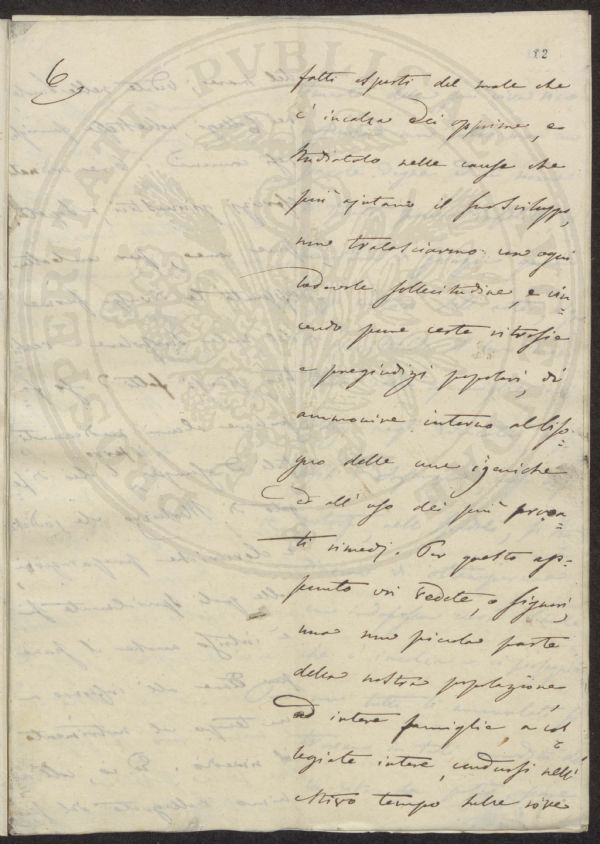 82
6
fatti esperti del male che
c'incalza e ci opprime, e
studiatolo nelle cause che
più ajutano il suo sviluppo,
non tralasciarono con ogni
lodevole sollecitudine, e vin=
cendo pure certe ritrosie
e pregiudizi popolari, di
ammonire intorno al biso=
gno delle cure igieniche
ed all'uso dei più pron=
ti rimedj. Per questo ap=
punto voi vedete, o Signori,
una non piccola parte
della nostra popolazione,
ed intere famiglie, e col=
legiate intere, condursi nell'
estivo tempo sulle rive
PROSPERITATI PVBLICAE